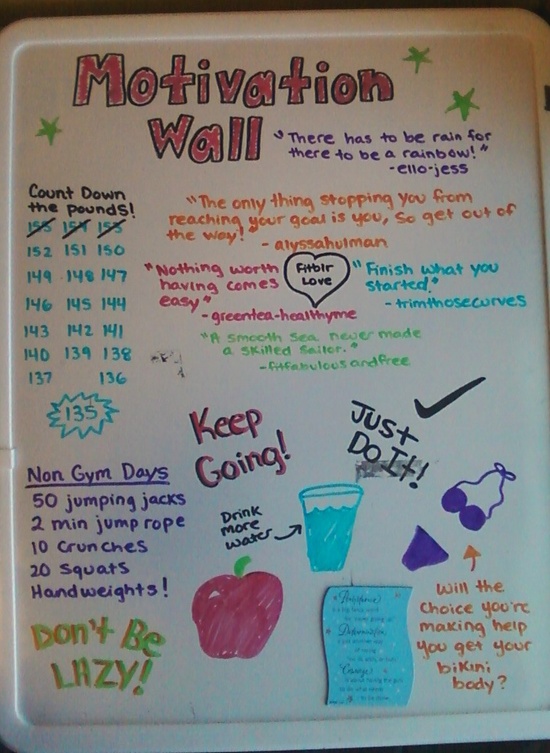 Motivation
Wall
"There has to be rain for
there to be a rainbow!"
-ello-jess
Count Down
the pounds!
155 154 153
152 151 150
149 148 147
146 145 144
143 142 141
140 139 138
137 136
135
"The only thing stopping you from
reaching your goal is you, so get out of
the way!"
- alyssahulman
"Nothing worth
having comes
easy"
- greentea-healthyme
Fitblr
Love
"Finish what you
started."
- trimthosecurves
"A smooth sea never made
a skilled sailor."
- fitfabulousandfree
Keep
Going!
Just
Do It!
Non Gym Days
50 jumping jacks
2 min jump rope
10 crunches
20 squats
Hand weights!
Don't Be
LAZY!
Drink
more
water
Determination
Courage
Will the
choice you're
making help
you get your
bikini
body?